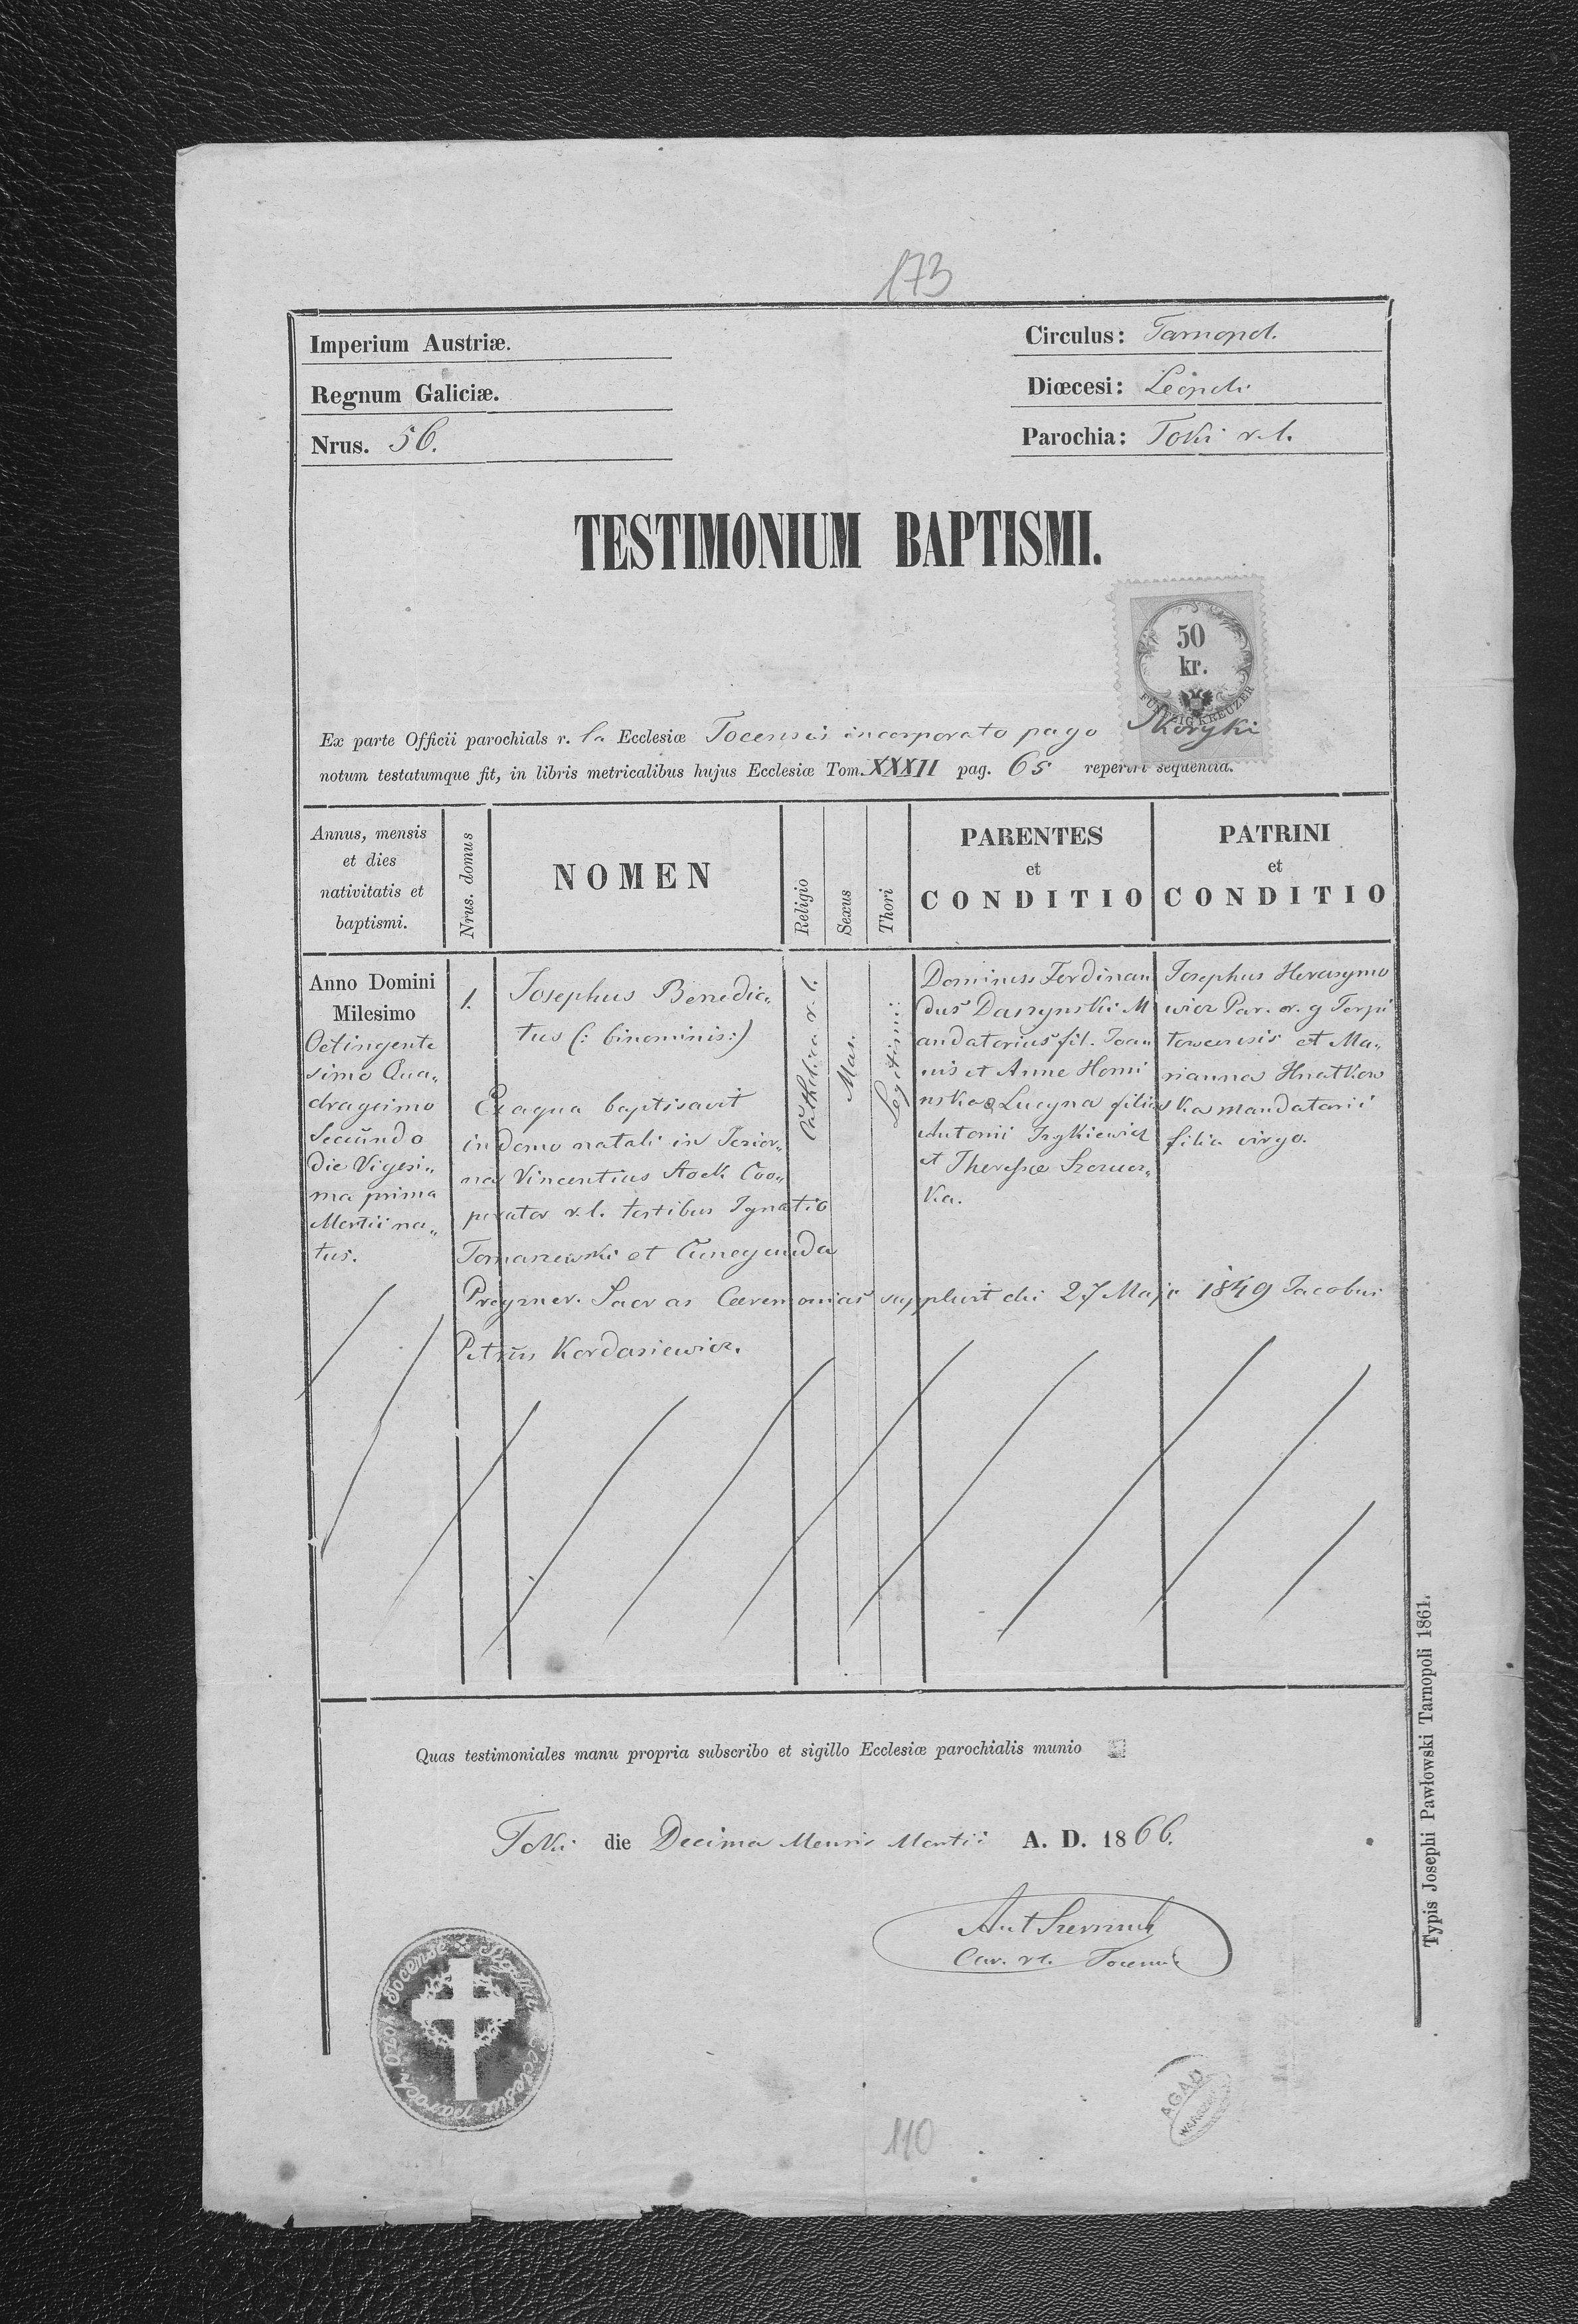 173
Imperium Austriæ.
Regnum Galiciæ.
Nrus. 56.
Circulus: Tarnopol.
Diœcesi: Leopoli
Parochia: Toki r. l.
TESTIMONIUM BAPTISMI.
50
kr.
FÜNFZIG KREUZER
Ex parte Officii parochials r. la Ecclesiæ Tocensis incorporato pago Skoryki
notum testatumque fit, in libris metricalibus hujus Ecclesiæ Tom. XXXII pag. 65 reperiri sequentia.
Annus, mensis
et dies
nativitatis et
baptismi.
Nrus. domus
NOMEN
Religio
Sexus
Thori
PARENTES
et
CONDITIO
PATRINI
et
CONDITIO
Anno Domini
Milesimo
Octingente
simo Qua„
dragesimo
Secundo
die Vigesi„
ma prima
Martii na„
tus.
1.
Josephus Benedic„
tus (: binominis:)
Ex aqua baptisavit
in domo natali in
Vincentius Stock Coo„
perator r. l. testibus Ignatio
Tomaszewski et Cunegunda
Sacras Cæremonias supplevit die 27 Maji 1849 Jacobus
Petrus Kordasiewicz.
Catholica r. l.
Mas.
Legitimi:
Dominus Ferdinan
dus Daszynski M
andatarius fil. Joan
nis et Anne Homi
nska & Lucyna filia
Antonii
et Theresæ
ka.
Josephus Herasymo
wicz Par. r. g Terpi
lowcensis et Ma„
rianna Hnatkow
ska mandatarii
filia virgo.
Quas testimoniales manu propria subscribo et sigillo Ecclesiæ parochialis munio
Toki die Decima Mensis Martii A. D. 1866.
Ant
Cur. r l. Tocensis
Sigillum Ecclesiæ Paroch. Tocense
AGAD
WARSZAWA
110
Typis Josephi Pawłowski Tarnopoli 1861.